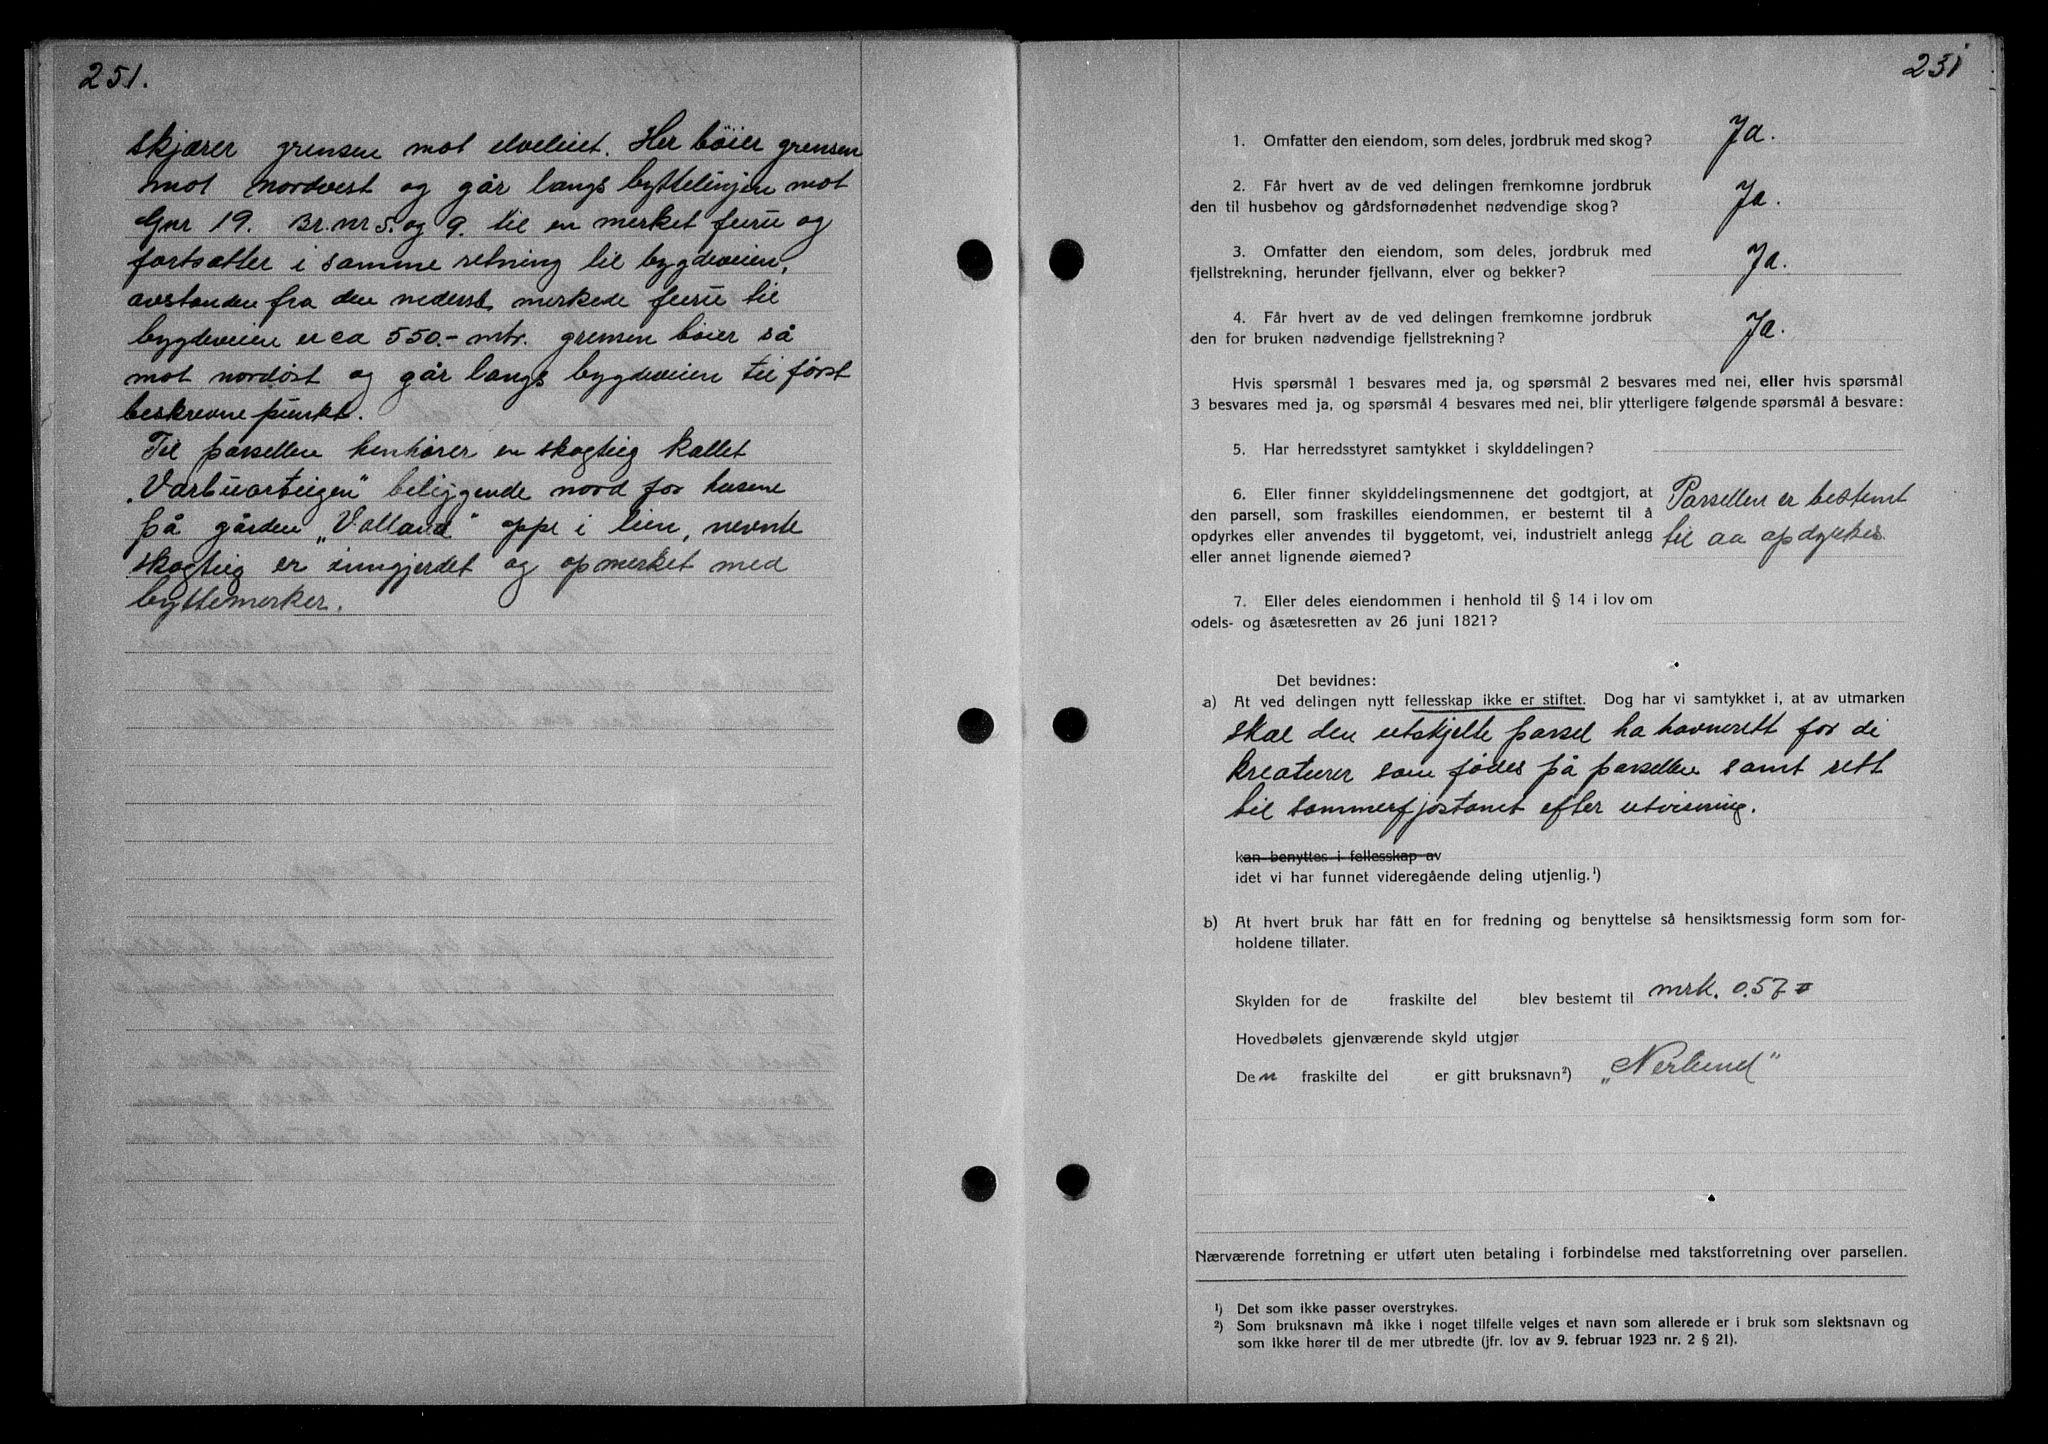 251.
skjærer grensen mot elveleiet. Her bøier grensen
mot nordvest og går langs byttelinjen mot
Gnr 19. Br.nr 5. og 9. til en merket furu og
fortsætter i samme retning til bygdeveien,
avstanden fra den nederst merkede furu til
bygdeveien er ca 550.- mtr. grensen bøier så
mot nordøst og går langs bygdeveien til først
beskrevne punkt.
Til parsellen henhører en skogteig kallet
"Varbuarteigen" beliggende nord for husene
på gården "Volland" oppe i lien, nevnte
skogteig er inngjerdet og opmerket med
byttemerker.
231
1. Omfatter den eiendom, som deles, jordbruk med skog? Ja.
2. Får hvert av de ved delingen fremkomne jordbruk
den til husbehov og gårdsfornødenhet nødvendige skog? Ja.
3. Omfatter den eiendom, som deles, jordbruk med
fjellstrekning, herunder fjellvann, elver og bekker? Ja.
4. Får hvert av de ved delingen fremkomne jordbruk
den for bruken nødvendige fjellstrekning? Ja.
Hvis spørsmål 1 besvares med ja, og spørsmål 2 besvares med nei, eller hvis spørsmål
3 besvares med ja, og spørsmål 4 besvares med nei, blir ytterligere følgende spørsmål å besvare:
5. Har herredsstyret samtykket i skylddelingen?
6. Eller finner skylddelingsmennene det godtgjort, at
den parsell, som fraskilles eiendommen, er bestemt til å
opdyrkes eller anvendes til byggetomt, vei, industrielt anlegg
eller annet lignende øiemed?
Parsellen er bestemt
til aa opdyrkes
7. Eller deles eiendommen i henhold til § 14 i lov om
odels- og åsætesretten av 26 juni 1821?
Det bevidnes:
a) At ved delingen nytt fellesskap ikke er stiftet. Dog har vi samtykket i, at av utmarken
skal den utskjelte parsel ha havnerett for de
kreaturer som fødes på parsellen samt rett
til sommerfjøstomt efter utvisning.
kan benyttes i fellesskap av
idet vi har funnet videregående deling utjenlig.¹)
b) At hvert bruk har fått en for fredning og benyttelse så hensiktsmessig form som for-
holdene tillater.
Skylden for de fraskilte del blev bestemt til mrk. 0.57
Hovedbølets gjenværende skyld utgjør
Den fraskilte del er gitt bruksnavn²) "Nerlund"
Nærværende forretning er utført uten betaling i forbindelse med takstforretning over parsellen.
¹) Det som ikke passer overstrykes.
²) Som bruksnavn må ikke i noget tilfelle velges et navn som allerede er i bruk som slektsnavn og
som ikke hører til de mer utbredte (jfr. lov av 9. februar 1923 nr. 2 § 21).